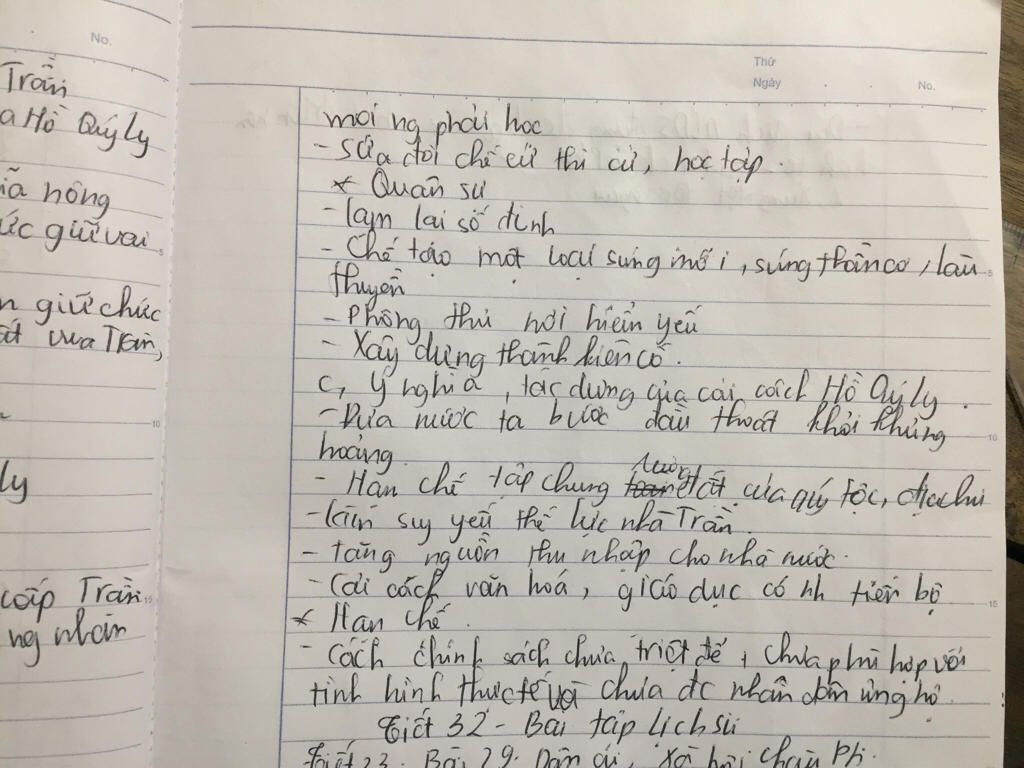 No.
Trần
a Hồ Quý ly
ĩa nông
ức giữ vai
n giữ chức
ất vua Trần,
ly
cấp Trần
ng nhân
Thứ
Ngày
No.
mọi ng phải học
- sửa đổi chế cử thi cử, học tập.
* Quân sự
- làm lại sổ đinh
- Chế tạo một loại súng mới, súng thần cơ, lâu
thuyền
- Phòng thủ nơi hiểm yếu
- Xây dựng thành kiên cố.
c, Ý nghĩa, tác dụng của cải cách Hồ Quý ly.
- Đưa nước ta bước đầu thoát khỏi khủng
hoảng
- Hạn chế tập chung ruộng đất của quý tộc, địa chủ
- làm suy yếu thế lực nhà Trần.
- tăng nguồn thu nhập cho nhà nước.
- Cải cách văn hoá, giáo dục có nh tiến bộ
* Hạn chế.
- Cách chính sách chưa triệt để, chưa phù hợp với
tình hình thực tế và chưa đc nhân dân ủng hộ.
Tiết 32 - Bài tập lịch sử
5
10
15
5
10
15